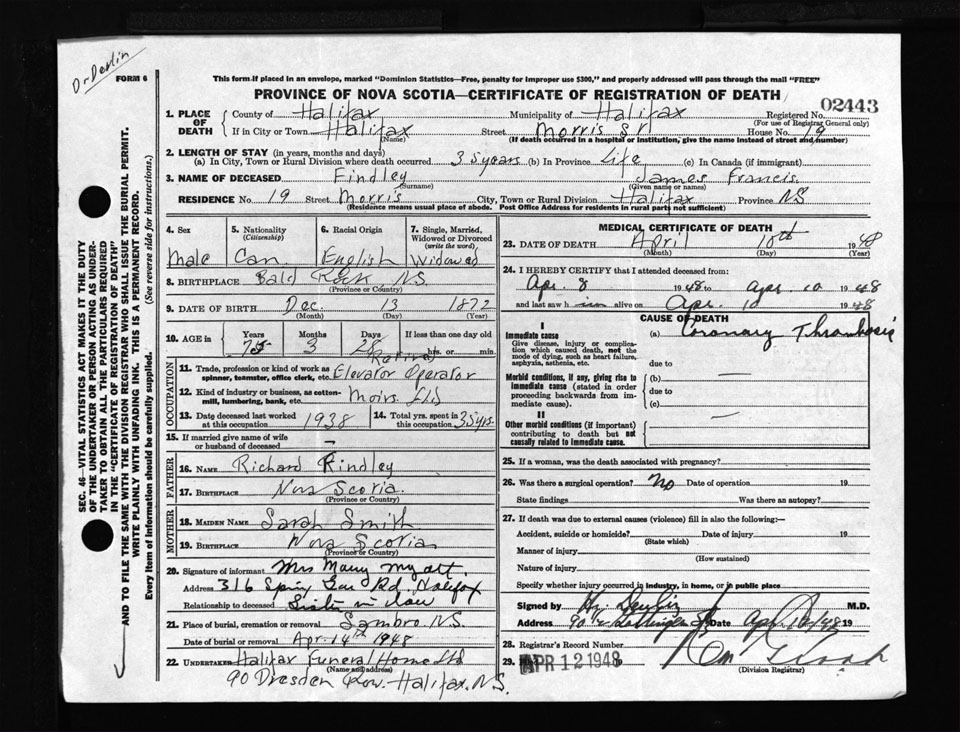 Dr Devlin
FORM 6
This form if placed in an envelope, marked "Dominion Statistics—Free, penalty for improper use $300," and properly addressed will pass through the mail "FREE"
PROVINCE OF NOVA SCOTIA—CERTIFICATE OF REGISTRATION OF DEATH
02443
1. PLACE OF DEATH
County of Halifax Municipality of Halifax Registered No.
(For use of Registrar General only)
If in City or Town Halifax Street Morris St House No. 19
(Name) (If death occurred in a hospital or institution, give the name instead of street and number)
2. LENGTH OF STAY (in years, months and days)
(a) In City, Town or Rural Division where death occurred 35 years (b) In Province Life (c) In Canada (if immigrant)
3. NAME OF DECEASED Findley James Francis
(Surname) (Given name or names)
RESIDENCE No 19 Street Morris City, Town or Rural Division Halifax Province NS
(Residence means usual place of abode. Post Office Address for residents in rural parts not sufficient)
4. Sex 5. Nationality (Citizenship) 6. Racial Origin 7. Single, Married, Widowed or Divorced (write the word)
Male Can. English Widowed
8. BIRTHPLACE Bald Rock N.S.
(Province or Country)
9. DATE OF BIRTH Dec. 13 1872
(Month) (Day) (Year)
10. AGE in Years Months Days If less than one day old
75 3 28 hrs. or min.
Retired
OCCUPATION
11. Trade, profession or kind of work as spinner, teamster, office clerk, etc. Elevator Operator
12. Kind of industry or business, as cotton-mill, lumbering, bank, etc. Moirs Ltd
13. Date deceased last worked at this occupation 1938 14. Total yrs. spent in this occupation 35 yrs.
15. If married give name of wife or husband of deceased –
FATHER
16. NAME Richard Findley
17. BIRTHPLACE Nova Scotia
(Province or Country)
MOTHER
18. MAIDEN NAME Sarah Smith
19. BIRTHPLACE Nova Scotia
(Province or Country)
20. Signature of informant Mrs Mary
Address 316 Spring Gar Rd, Halifax
Relationship to deceased Sister in law
21. Place of burial, cremation or removal Sambro N.S.
Date of burial or removal Apr. 14th 1948
22. UNDERTAKER Halifax Funeral Home Ltd
(Name and address)
90 Dresden Row. Halifax. N.S.
MEDICAL CERTIFICATE OF DEATH
23. DATE OF DEATH April 10th 1948
(Month) (Day) (Year)
24. I HEREBY CERTIFY that I attended deceased from:
Apr. 8 1948 to Apr. 10 1948
and last saw h im alive on Apr. 10 1948
CAUSE OF DEATH
I
Immediate cause
Give disease, injury or complication which caused death, not the mode of dying, such as heart failure, asphyxia, asthenia, etc.
(a) Coronary Thrombosis
due to
Morbid conditions, if any, giving rise to immediate cause (stated in order proceeding backwards from immediate cause).
(b) —
due to
(c)
II
Other morbid conditions (if important) contributing to death but not causally related to immediate cause.
—
25. If a woman, was the death associated with pregnancy?
26. Was there a surgical operation? No Date of operation 19
State findings Was there an autopsy?
27. If death was due to external causes (violence) fill in also the following:—
Accident, suicide or homicide? Date of injury 19
(State which)
Manner of injury
(How sustained)
Nature of injury
Specify whether injury occurred in industry, in home, or in public place
Signed by M.D.
Address Date Apr. 10/48 19
28. Registrar's Record Number
29. APR 12 1948
(Division Registrar)
SEC. 46—VITAL STATISTICS ACT MAKES IT THE DUTY
OF THE UNDERTAKER OR PERSON ACTING AS UNDER-
TAKER TO OBTAIN ALL THE PARTICULARS REQUIRED
IN THE "CERTIFICATE OF REGISTRATION OF DEATH"
AND TO FILE THE SAME WITH THE DIVISION REGISTRAR WHO SHALL ISSUE THE BURIAL PERMIT.
WRITE PLAINLY WITH UNFADING INK. THIS IS A PERMANENT RECORD.
Every item of information should be carefully supplied. (See reverse side for instructions.)